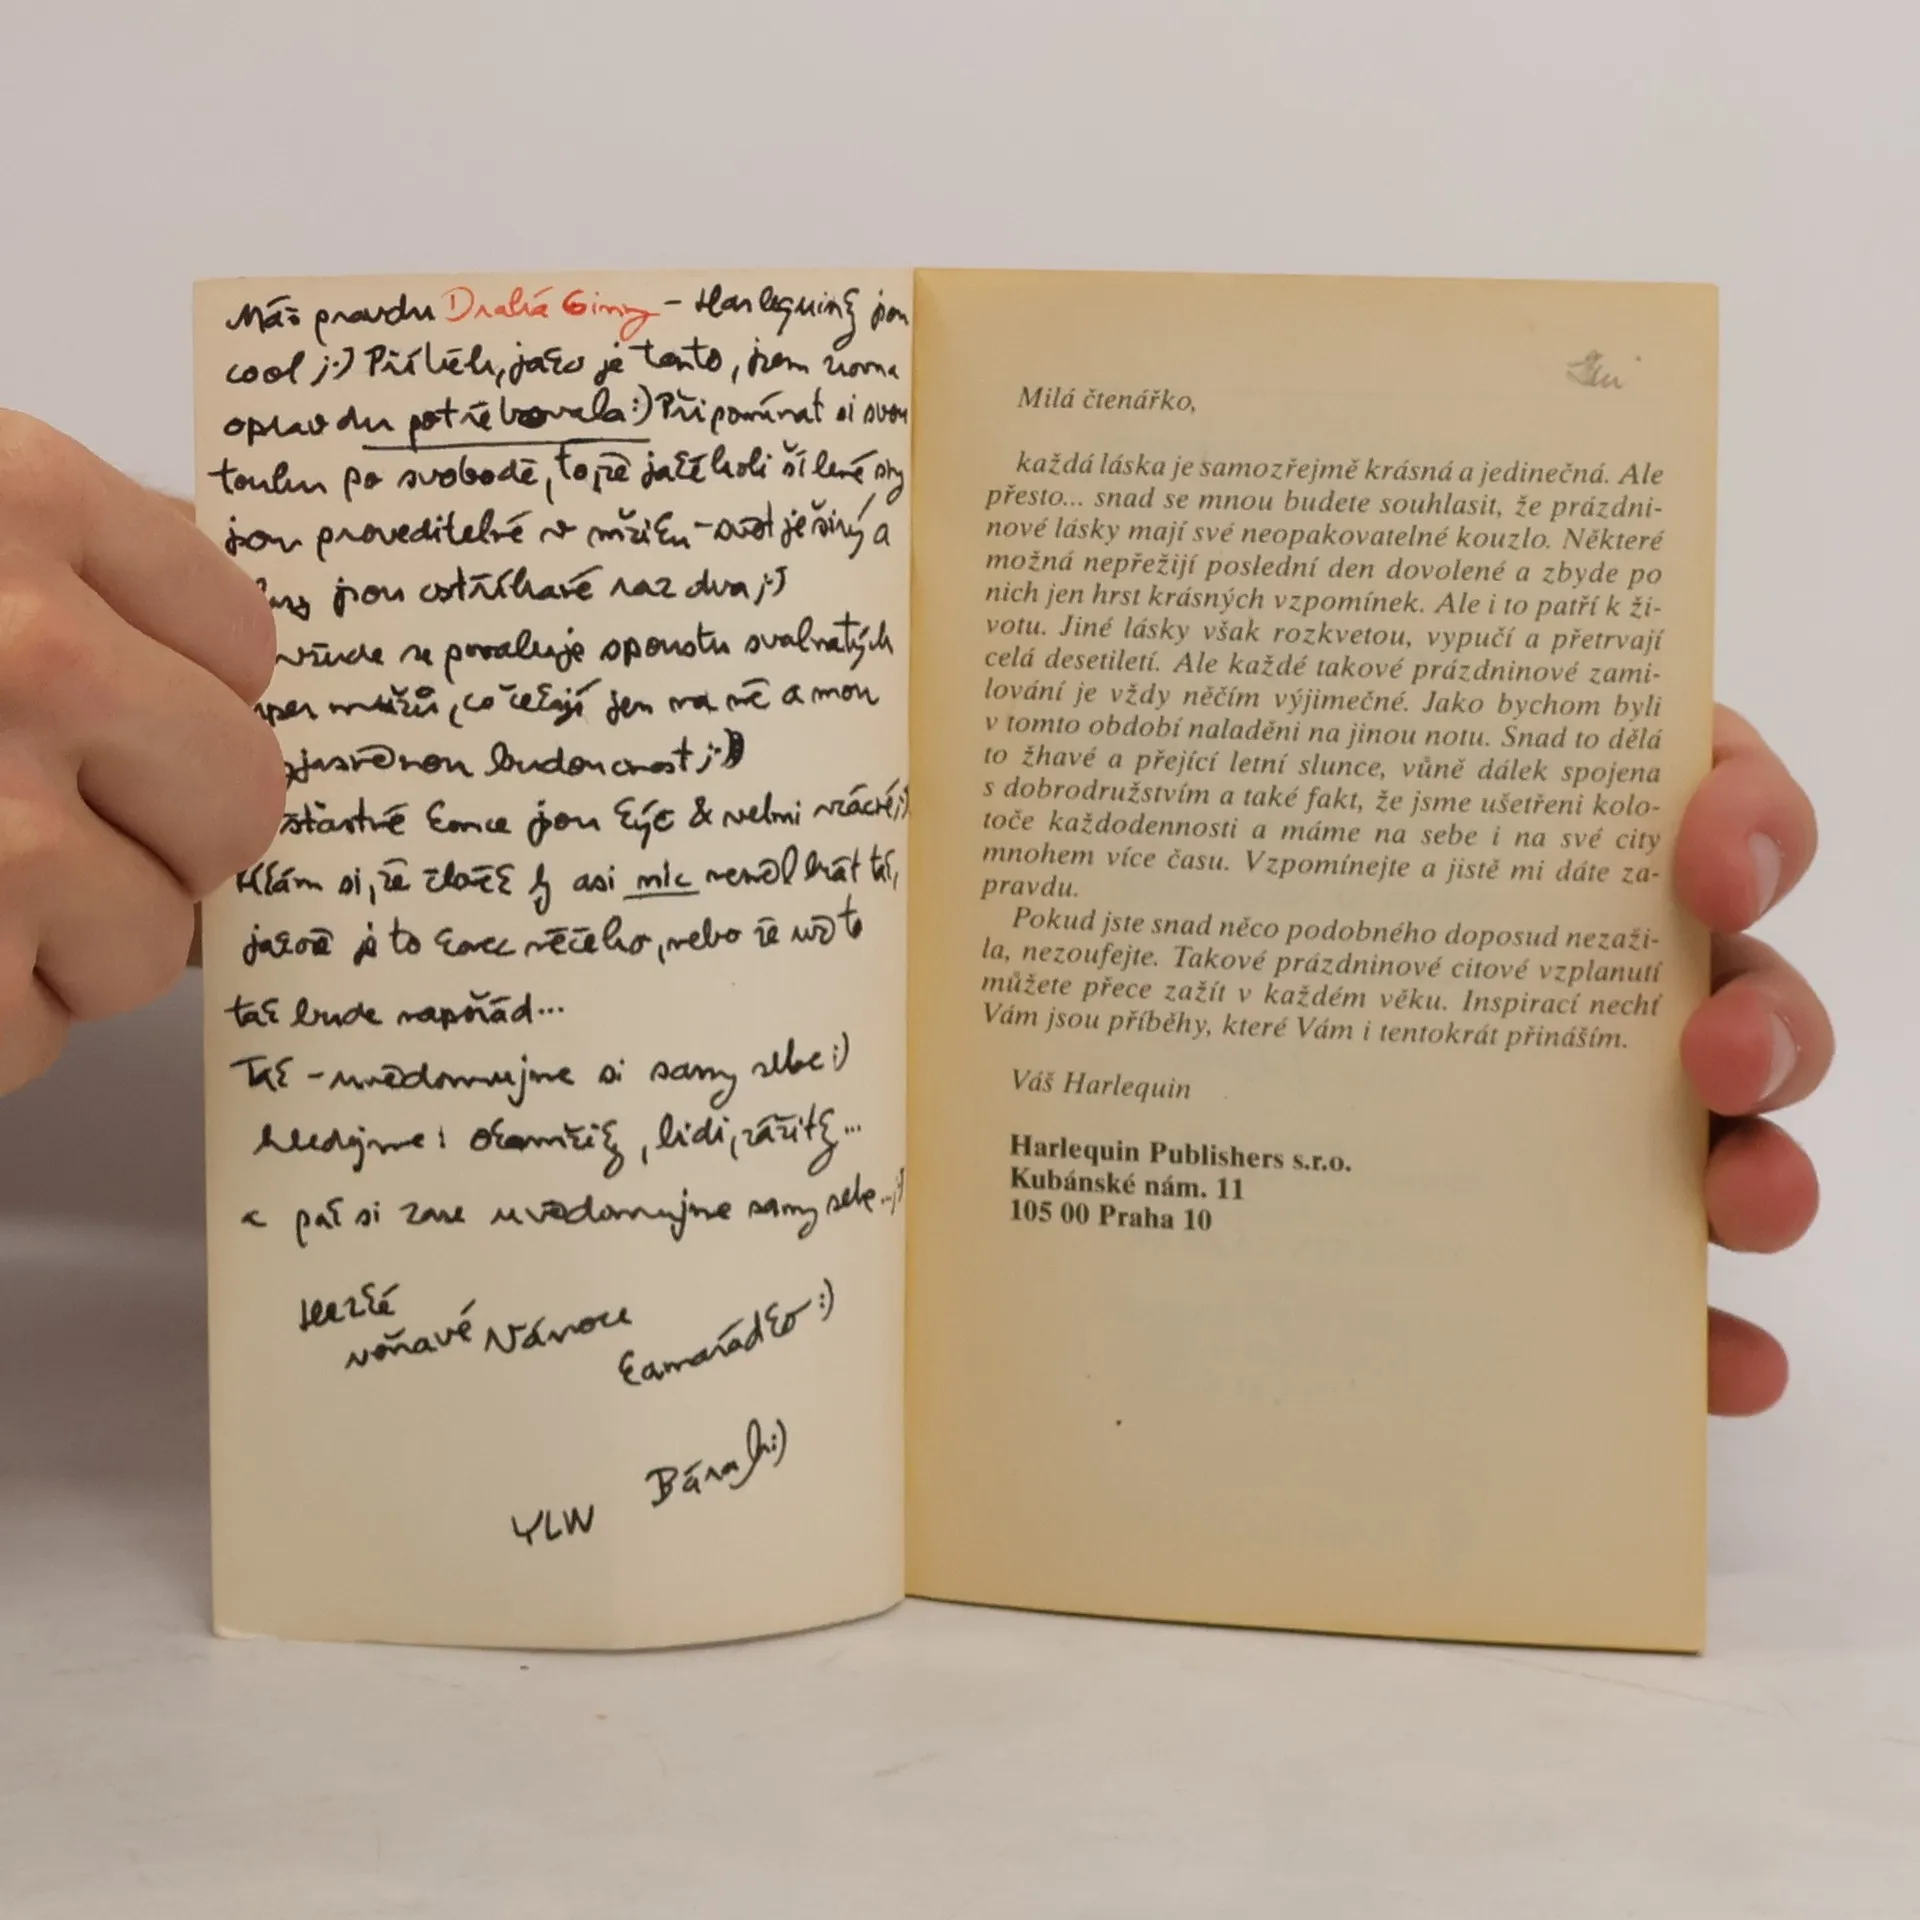 Máš pravdu Drahá Ginny - Harlequiny jsou
cool ;:) Příběh, jako je tento, jsem zrovna
opravdu potřebovala :) Připomínat si svou
touhu po svobodě, to, že jakékoli šílené sny
jsou proveditelné v mžiku - svět je širý a
jsou ostříhané raz dva ;:)
všude se povaluje spoustu svalnatých
super mužů, co čekají jen na mě a mou
budoucnost ;:)
šťastné konce jsou kýč & velmi vzácné ;:)
Říkám si, že člověk by asi nic neměl brát tak,
jakože je to konec něčeho, nebo že už to
tak bude napořád...
Tak - uvědomujme si samy sebe :)
hledejme: okamžiky, lidi, zážitky...
a pak si zase uvědomujme samy sebe... ;:)
Hezké
voňavé Vánoce
kamarádko :)
Bára :)
YLW
Milá čtenářko,
každá láska je samozřejmě krásná a jedinečná. Ale
přesto... snad se mnou budete souhlasit, že prázdni-
nové lásky mají své neopakovatelné kouzlo. Některé
možná nepřežijí poslední den dovolené a zbyde po
nich jen hrst krásných vzpomínek. Ale i to patří k ži-
votu. Jiné lásky však rozkvetou, vypučí a přetrvají
celá desetiletí. Ale každé takové prázdninové zami-
lování je vždy něčím výjimečné. Jako bychom byli
v tomto období naladěni na jinou notu. Snad to dělá
to žhavé a přející letní slunce, vůně dálek spojena
s dobrodružstvím a také fakt, že jsme ušetřeni kolo-
toče každodennosti a máme na sebe i na své city
mnohem více času. Vzpomínejte a jistě mi dáte za-
pravdu.
Pokud jste snad něco podobného doposud nezaži-
la, nezoufejte. Takové prázdninové citové vzplanutí
můžete přece zažít v každém věku. Inspirací nechť
Vám jsou příběhy, které Vám i tentokrát přináším.
Váš Harlequin
Harlequin Publishers s.r.o.
Kubánské nám. 11
105 00 Praha 10